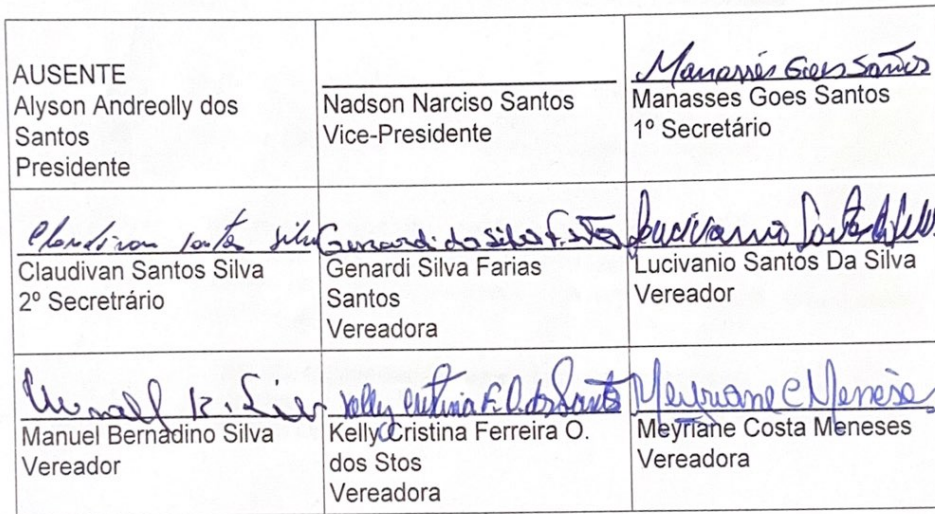 AUSENTE
Alyson Andreolly dos
Santos
Presidente
Nadson Narciso Santos
Vice-Presidente
Manassés Goes Santos
Manasses Goes Santos
1º Secretário
Claudivan Santos Silva
Claudivan Santos Silva
2º Secretrário
Genardi da Silva F. Stos
Genardi Silva Farias
Santos
Vereadora
Lucivanio Santos da Silva
Lucivanio Santos Da Silva
Vereador
Manuel B. Silva
Manuel Bernadino Silva
Vereador
Kelly Cristina F. O. dos Santos
Kelly Cristina Ferreira O.
dos Stos
Vereadora
Meyriane C Meneses
Meyriane Costa Meneses
Vereadora